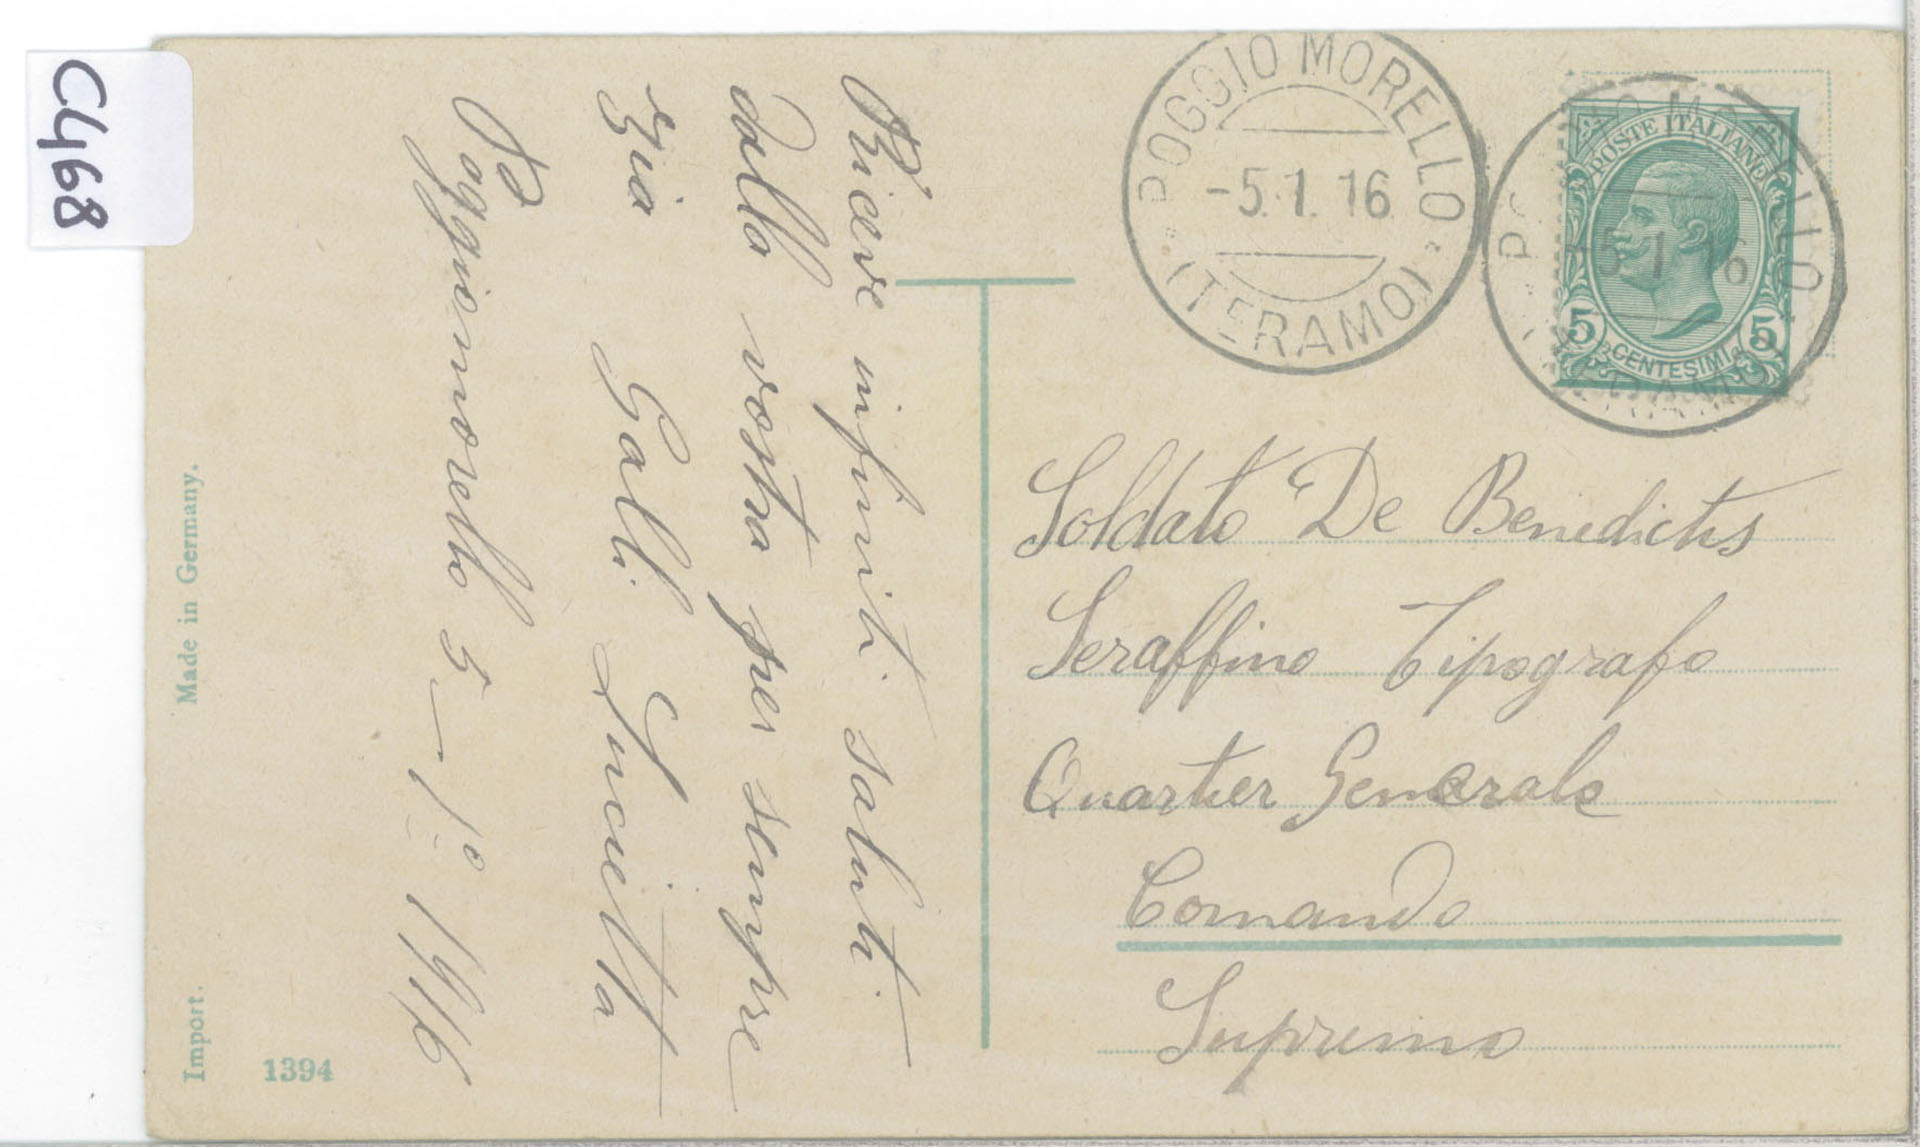 C468
Riceve infiniti saluti
dalla vostra per sempre
zia Galli Lucietta
Poggiomorello 5_1º 1916
POGGIO MORELLO
-5.1.16
(TERAMO)
POSTE ITALIANE
5 CENTESIMI 5
-5.1.16
Soldato De Benedictis
Seraffino Tipografo
Quartier Generale
Comando
Supremo
Made in Germany.
Import.
1394